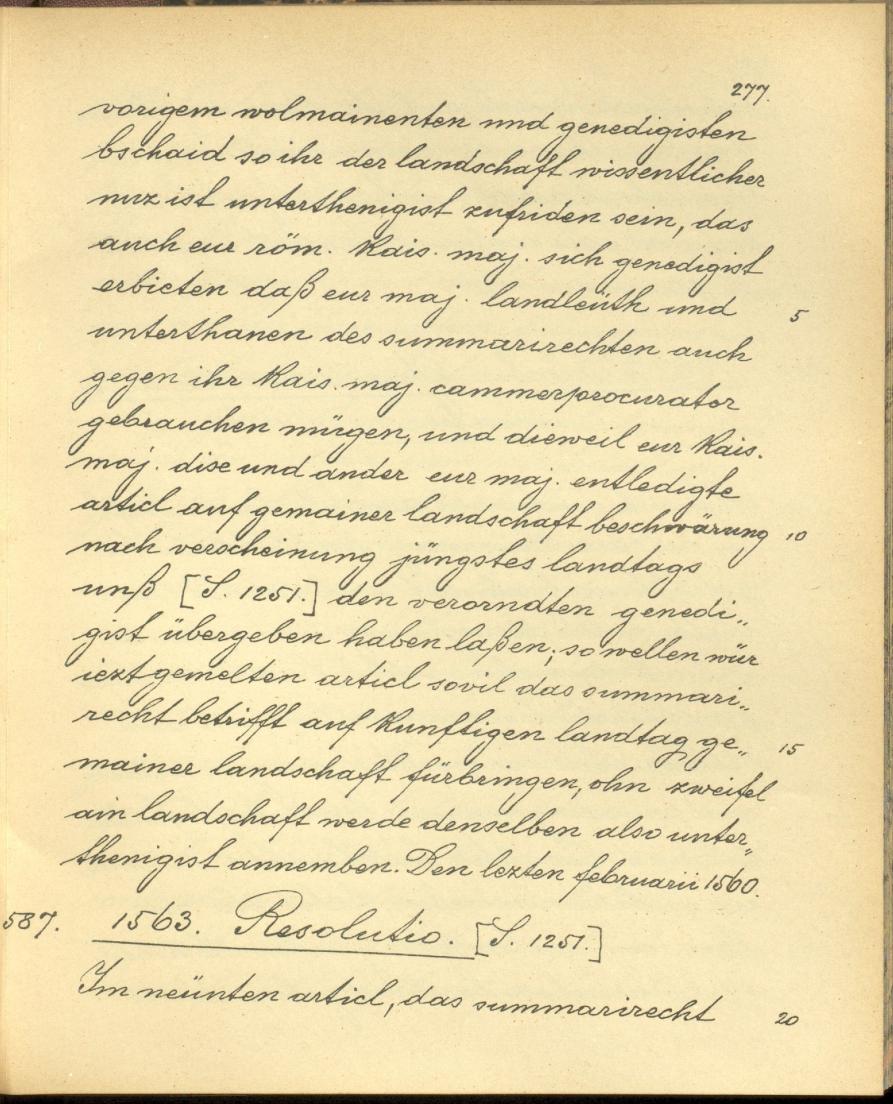 277.
vorigem wolmainenten und genedigisten
bschaid so ihr der landschaft wissentlicher
nuz ist unterthenigist zufriden sein, das
auch eur röm. kais. maj. sich genedigist
erbieten daß eur maj. landleüth und 5
unterthanen des summarirechten auch
gegen ihr kais. maj. cammerprocurator
gebrauchen mügen, und dieweil eur kais.
maj. dise und ander eur maj. entledigte
articl auf gemainer landschaft beschwärung 10
nach verscheinung jüngstes landtags
unß [S. 1251.] den verorndten genedi„
gist übergeben haben laßen; so wellen wür
iezt gemelten articl sovil das summari„
recht betrifft auf kunftigen landtag ge„ 15
mainer landschaft fürbringen, ohn zweifel
ain landschaft werde denselben also unter„
thenigist annemben. Den lezten februarii 1560.
587. 1563. Resolutio. [S. 1251.]
Im neünten articl, das summarirecht 20